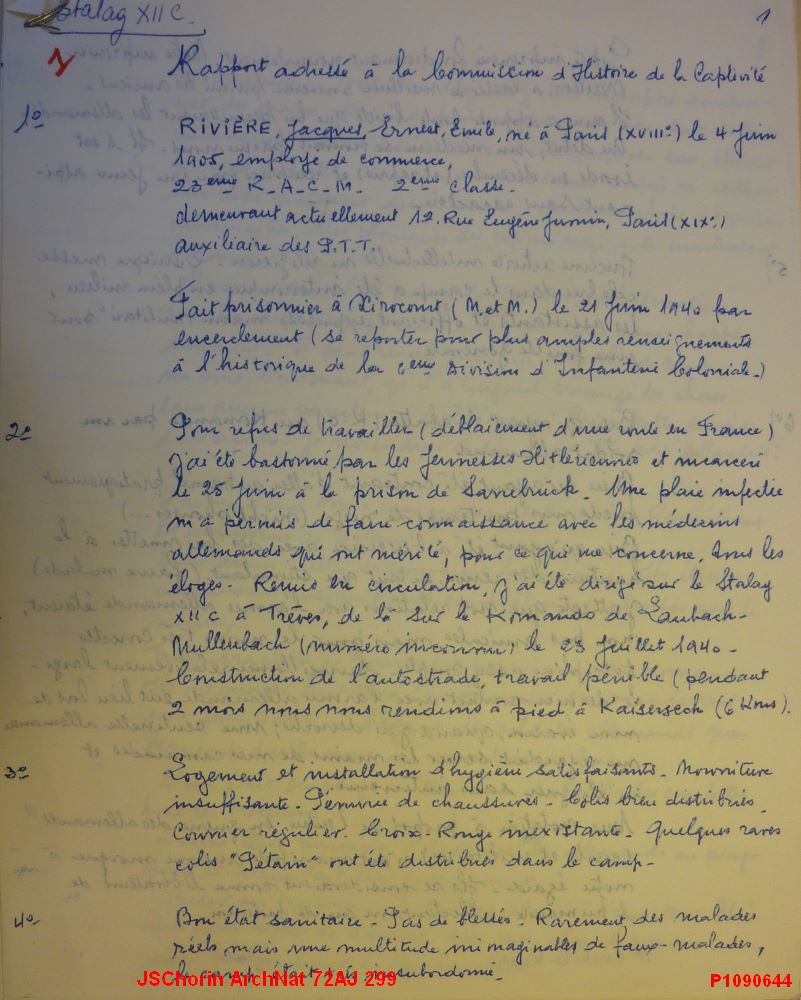 Stalag XII C.
1
Rapport adressé à la Commission d'Histoire de la Captivité
1º
RIVIÈRE, Jacques, Ernest, Emile, né à Paris (XVIIIº) le 4 Juin
1905, employé de commerce,
23ème R_A_C_M_ 2ème Classe_
demeurant actuellement 12. Rue Eugène Jumin, Paris (XIXº)
auxiliaire des P.T.T.
Fait prisonnier à Xirocourt (M. et M.) le 21 Juin 1940 par
encerclement (se reporter pour plus amples renseignements
à l'historique de la 6ème Division d'Infanterie Coloniale_)
2º
Pour refus de travailler (déblaiement d'une route en France)
j'ai été bastonné par les Jeunesses Hitlériennes et incarcéré
le 25 Juin à la prison de Sarrebrück_ Une plaie infectée
m'a permis de faire connaissance avec les médecins
allemands qui ont mérité, pour ce qui me concerne, tous les
éloges_ Remis en circulation, j'ai été dirigé sur le Stalag
XII C à Trèves, de là sur le Komando de Laubach-
Mullenbach (numéro inconnu) le 23 Juillet 1940_
Construction de l'autostrade, travail pénible (pendant
2 mois nous nous rendions à pied à Kaisersech (6 Kms).
3º
Logement et installation d'hygiène satisfaisants_ Nourriture
insuffisante_ Pénurie de chaussures_ Colis bien distribués_
Courrier régulier. Croix-Rouge inexistante_ Quelques rares
colis "Pétain" ont été distribués dans le camp_
4º
Bon état sanitaire_ Pas de blessés_ Rarement des malades
réels mais une multitude inimaginables de faux-malades,
le camp était très insubordonné_
JSChorin ArchNat 72AJ 299
P1090644